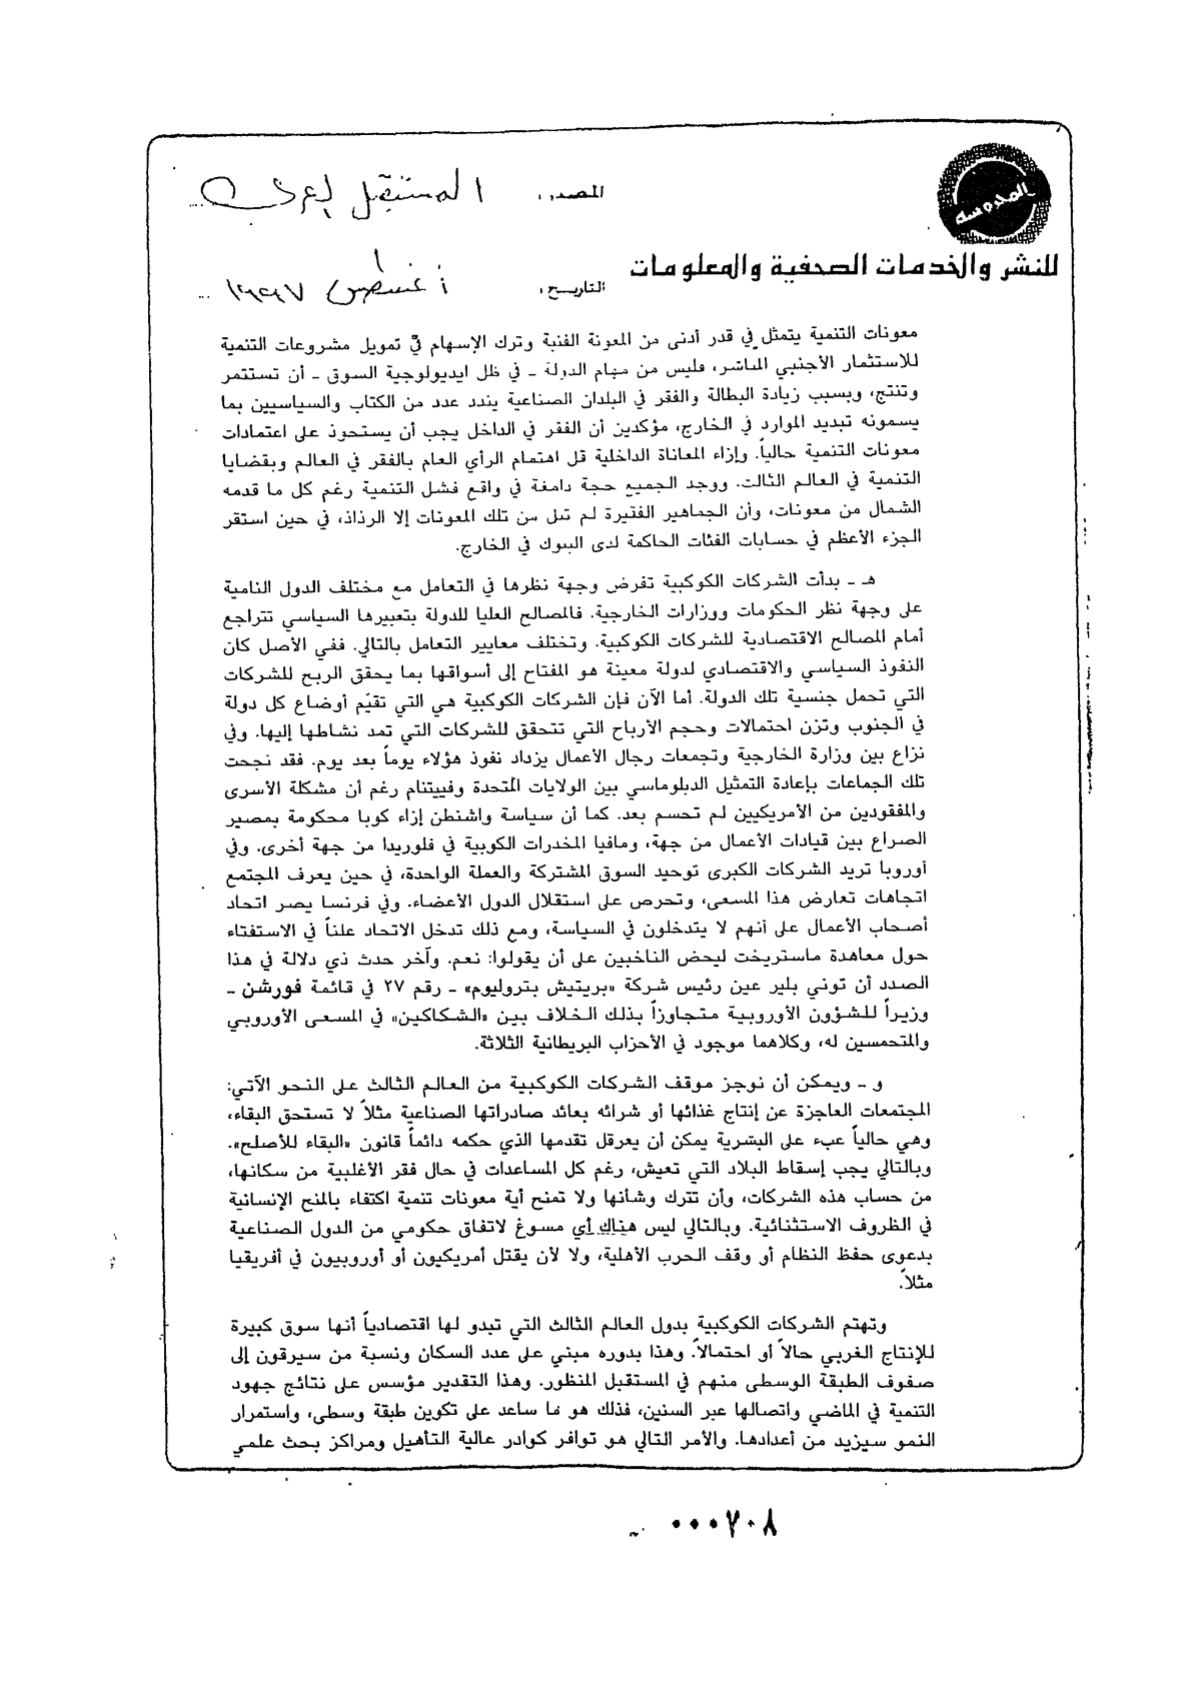 المحروسة
المصدر: المستقبل العربي
للنشر والخدمات الصحفية والمعلومات
التاريخ: أغسطس ١٩٩٧
معونات التنمية يتمثل في قدر أدنى من المعونة الفنية وترك الإسهام في تمويل مشروعات التنمية
للاستثمار الأجنبي المباشر، فليس من مهام الدولة - في ظل ايديولوجية السوق - أن تستثمر
وتنتج، وبسبب زيادة البطالة والفقر في البلدان الصناعية يندد عدد من الكتاب والسياسيين بما
يسمونه تبديد الموارد في الخارج، مؤكدين أن الفقر في الداخل يجب أن يستحوذ على اعتمادات
معونات التنمية حالياً. وإزاء المعاناة الداخلية قل اهتمام الرأي العام بالفقر في العالم وبقضايا
التنمية في العالم الثالث. ووجد الجميع حجة دامغة في واقع فشل التنمية رغم كل ما قدمه
الشمال من معونات، وأن الجماهير الفقيرة لم تنل من تلك المعونات إلا الرذاذ، في حين استقر
الجزء الأعظم في حسابات الفئات الحاكمة لدى البنوك في الخارج.
هـ - بدأت الشركات الكوكبية تفرض وجهة نظرها في التعامل مع مختلف الدول النامية
على وجهة نظر الحكومات ووزارات الخارجية. فالمصالح العليا للدولة بتعبيرها السياسي تتراجع
أمام المصالح الاقتصادية للشركات الكوكبية. وتختلف معايير التعامل بالتالي. ففي الأصل كان
النفوذ السياسي والاقتصادي لدولة معينة هو المفتاح إلى أسواقها بما يحقق الربح للشركات
التي تحمل جنسية تلك الدولة. أما الآن فإن الشركات الكوكبية هي التي تقيّم أوضاع كل دولة
في الجنوب وتزن احتمالات وحجم الأرباح التي تتحقق للشركات التي تمد نشاطها إليها. وفي
نزاع بين وزارة الخارجية وتجمعات رجال الأعمال يزداد نفوذ هؤلاء يوماً بعد يوم. فقد نجحت
تلك الجماعات بإعادة التمثيل الدبلوماسي بين الولايات المتحدة وفييتنام رغم أن مشكلة الأسرى
والمفقودين من الأمريكيين لم تحسم بعد. كما أن سياسة واشنطن إزاء كوبا محكومة بمصير
الصراع بين قيادات الأعمال من جهة، ومافيا المخدرات الكوبية في فلوريدا من جهة أخرى. وفي
أوروبا تريد الشركات الكبرى توحيد السوق المشتركة والعملة الواحدة، في حين يعرف المجتمع
اتجاهات تعارض هذا المسعى، وتحرص على استقلال الدول الأعضاء. وفي فرنسا يصر اتحاد
أصحاب الأعمال على أنهم لا يتدخلون في السياسة، ومع ذلك تدخل الاتحاد علناً في الاستفتاء
حول معاهدة ماستريخت ليحض الناخبين على أن يقولوا: نعم. وآخر حدث ذي دلالة في هذا
الصدد أن توني بلير عين رئيس شركة «بريتيش بتروليوم» - رقم ٢٧ في قائمة فورشن -
وزيراً للشؤون الأوروبية متجاوزاً بذلك الخلاف بين «الشكاكين» في المسعى الأوروبي
والمتحمسين له، وكلاهما موجود في الأحزاب البريطانية الثلاثة.
و - ويمكن أن نوجز موقف الشركات الكوكبية من العالم الثالث على النحو الآتي:
المجتمعات العاجزة عن إنتاج غذائها أو شرائه بعائد صادراتها الصناعية مثلاً لا تستحق البقاء،
وهي حالياً عبء على البشرية يمكن أن يعرقل تقدمها الذي حكمه دائماً قانون «البقاء للأصلح».
وبالتالي يجب إسقاط البلاد التي تعيش، رغم كل المساعدات في حال فقر الأغلبية من سكانها،
من حساب هذه الشركات، وأن تترك وشأنها ولا تمنح أية معونات تنمية اكتفاء بالمنح الإنسانية
في الظروف الاستثنائية. وبالتالي ليس هناك أي مسوغ لاتفاق حكومي من الدول الصناعية
بدعوى حفظ النظام أو وقف الحرب الأهلية، ولا لأن يقتل أمريكيون أو أوروبيون في أفريقيا
مثلاً.
وتهتم الشركات الكوكبية بدول العالم الثالث التي تبدو لها اقتصادياً أنها سوق كبيرة
للإنتاج الغربي حالاً أو احتمالاً. وهذا بدوره مبني على عدد السكان ونسبة من سيرقون إلى
صفوف الطبقة الوسطى منهم في المستقبل المنظور. وهذا التقدير مؤسس على نتائج جهود
التنمية في الماضي واتصالها عبر السنين، فذلك هو ما ساعد على تكوين طبقة وسطى، واستمرار
النمو سيزيد من أعدادها. والأمر التالي هو توافر كوادر عالية التأهيل ومراكز بحث علمي
٠٠٠٧٠٨